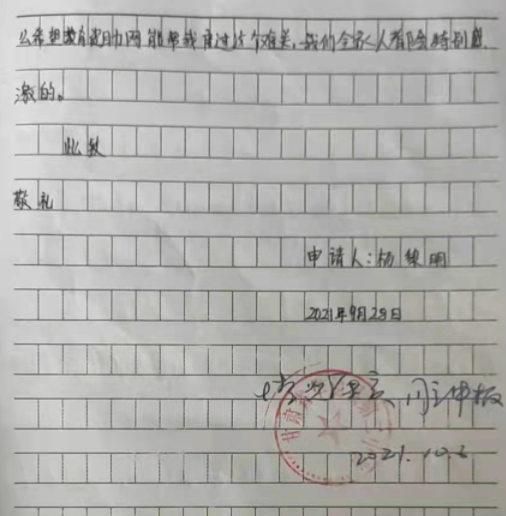 么希望教育救助网能帮我度过这个难关,我们全家人都会特别感
激的。
此致
敬礼
申请人:杨 明
2021年9月28日
情况属实,同意申报
2021.10.2
甘肃